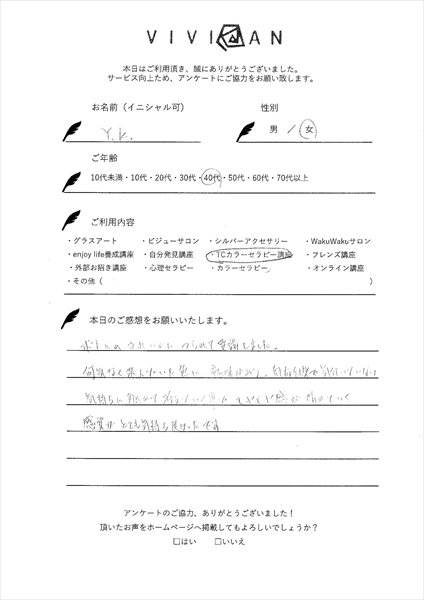 VIVIAN
本日はご利用頂き、誠にありがとうございました。
サービス向上ため、アンケートにご協力をお願い致します。
お名前（イニシャル可） 性別
Y.K. 男 / 女
ご年齢
10代未満・10代・20代・30代・40代・50代・60代・70代以上
ご利用内容
・グラスアート ・ビジューサロン ・シルバーアクセサリー ・WakuWakuサロン
・enjoy life養成講座 ・自分発見講座 ・TCカラーセラピー講座 ・フレンズ講座
・外部お招き講座 ・心理セラピー ・カラーセラピー ・オンライン講座
・その他（ ）
本日のご感想をお願いいたします。
ボトルのうれいさに つられて受講しました。
何気なく選んだ色に
気持ちに
感覚が とても気持ち良かったです
アンケートのご協力、ありがとうございました！
頂いたお声をホームページへ掲載してもよろしいでしょうか？
□はい □いいえ